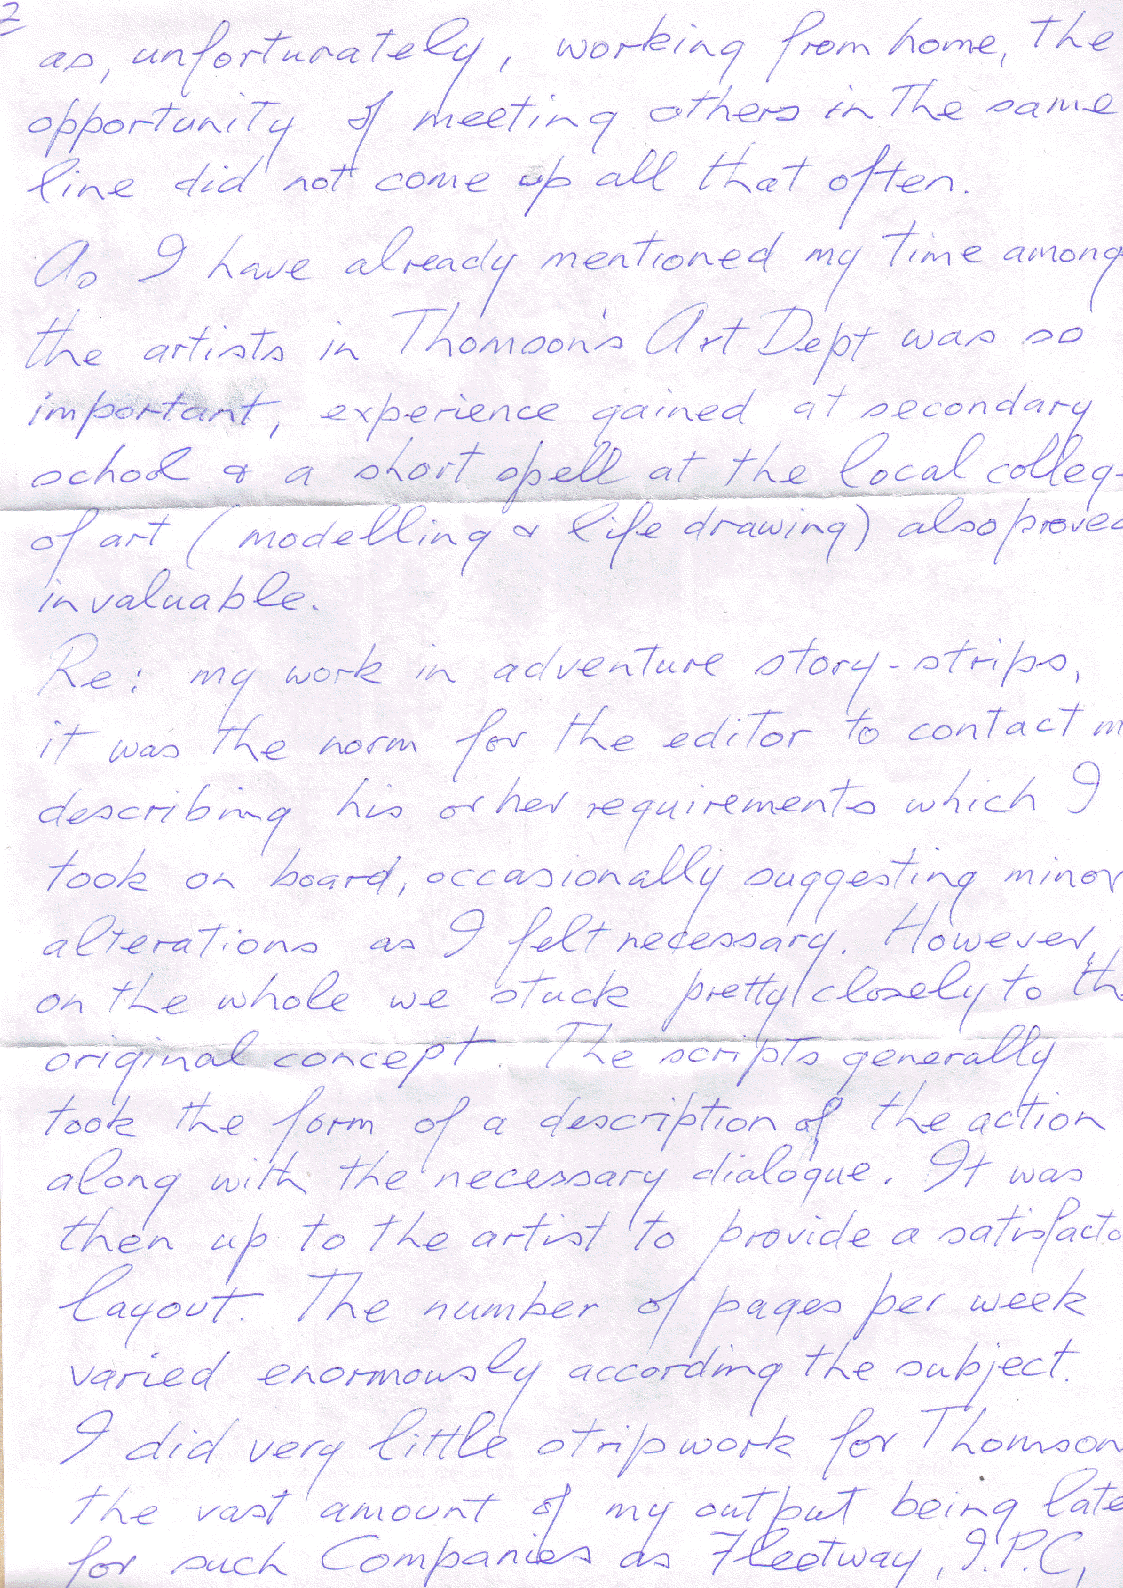 2
as, unfortunately, working from home, the
opportunity of meeting others in the same
line did not come up all that often.
As I have already mentioned my time among
the artists in Thomson's Art Dept was so
important, experience gained at secondary
school & a short spell at the local colleg
of art (modelling & life drawing) also proved
invaluable.
Re: my work in adventure story-strips,
it was the norm for the editor to contact m
describing his or her requirements which I
took on board, occasionally suggesting minor
alterations as I felt necessary. However,
on the whole we stuck pretty closely to th
original concept. The scripts generally
took the form of a description of the action
along with the necessary dialogue. It was
then up to the artist to provide a satisfacto
layout. The number of pages per week
varied enormously according the subject.
I did very little stripwork for Thomson
the vast amount of my output being late
for such Companies as Fleetway, I.P.C,